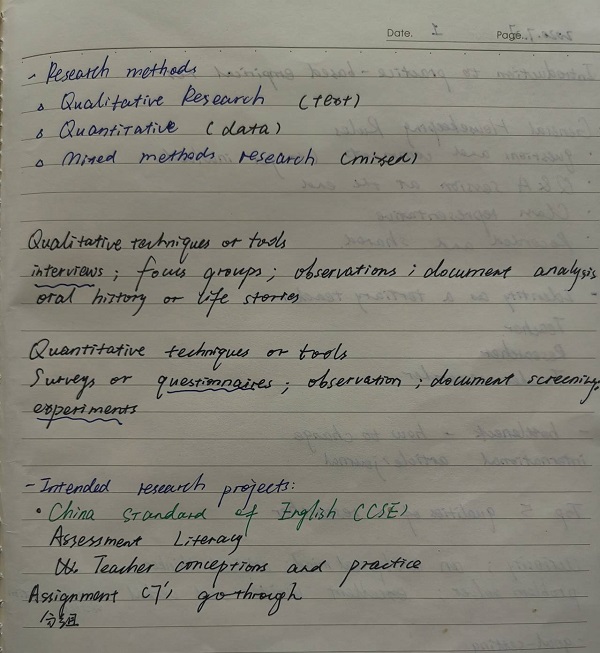 Date. 1 Page.
- Research methods
△ Qualitative Research (text)
△ Quantitative (data)
△ Mixed methods research (mixed)
Qualitative techniques or tools
interviews; focus groups; observations; document analysis
oral history or life stories
Quantitative techniques or tools
Surveys or questionnaires; observation; document screening;
experiments
- Intended research projects:
• China Standard of English (CSE)
Assessment Literacy
Teacher conceptions and practice
Assignment go through
分组